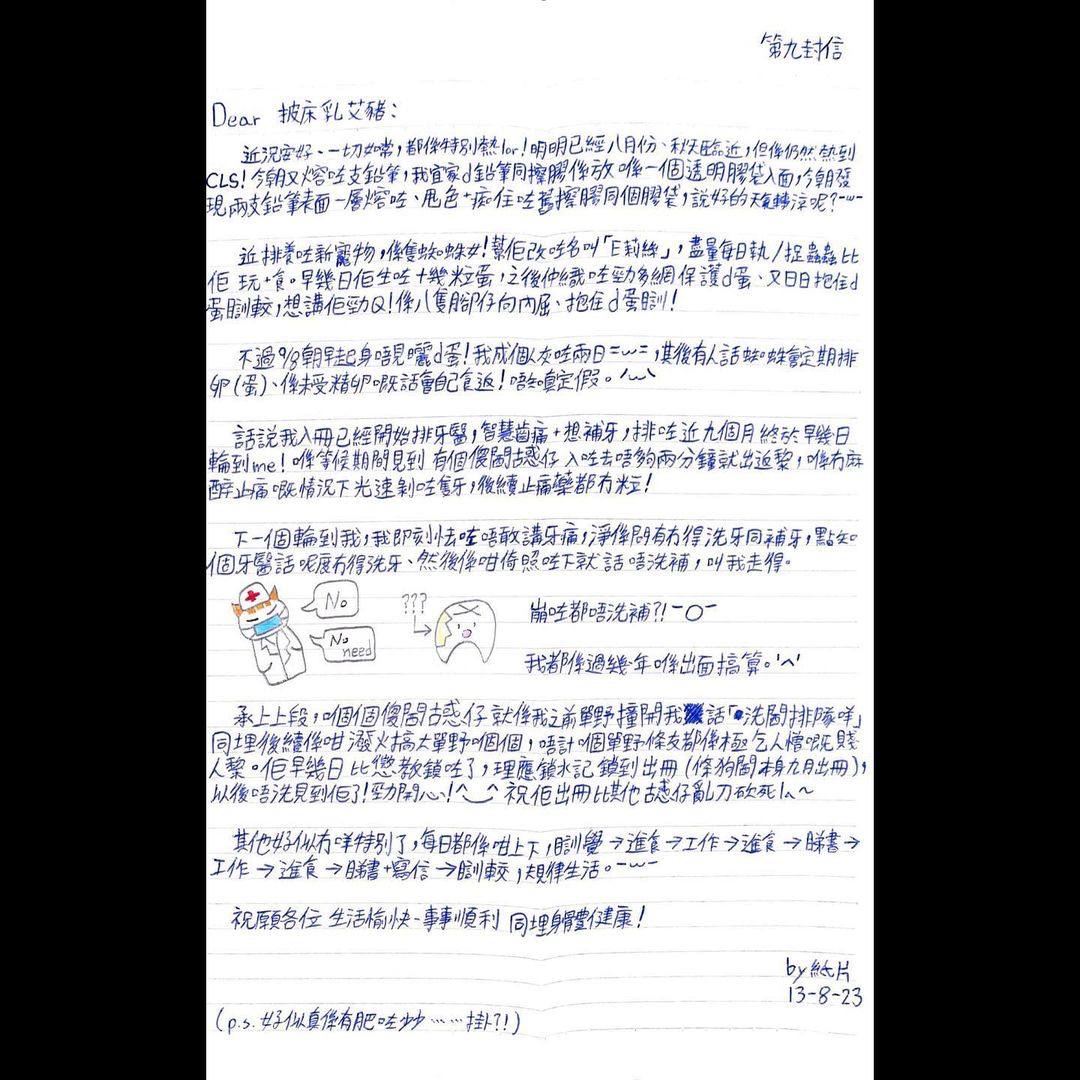 第九封信
Dear 披床乳艾豬：
近況安好、一切如常，都係特別熱lor！明明已經八月份、秋天臨近，但係仍然熱到
CLS！今朝又熔咗支鉛筆，我宜家d鉛筆同擦膠係放喺一個透明膠袋入面，今朝發
現兩支鉛筆表面一層熔咗、甩色+痴住咗舊擦膠同個膠袋，說好的天氣轉涼呢？-w-
近排養咗新寵物，係隻蜘蛛女！幫佢改咗名叫「E莉絲」，盡量每日執/捉蟲蟲比
佢玩+食。早幾日佢生咗十幾粒蛋，之後仲織咗勁多網保護d蛋、又日日抱住d
蛋瞓較，想講佢勁Q！係八隻腳仔向內屈、抱住d蛋瞓！
不過9/8朝早起身唔見曬d蛋！我成個人灰咗兩日=w=，其後有人話蜘蛛會定期排
卵(蛋)、係未受精卵嘅話會自己食返！唔知真定假。'w'
話說我入冊已經開始排牙醫，智慧齒痛+想補牙，排咗近九個月終於早幾日
輪到me！喺等候期間見到有個傻閪古惑仔入咗去唔夠兩分鐘就出返黎，喺冇麻
醉止痛嘅情況下光速剝咗隻牙，後續止痛藥都冇粒！
下一個輪到我，我即刻怯咗唔敢講牙痛，淨係問有冇得洗牙同補牙，點知
個牙醫話呢度冇得洗牙、然後係咁倚照咗下就話唔洗補，叫我走得。
No
No need
???
崩咗都唔洗補?! -O-
我都係過幾年喺出面搞算。'^'
承上上段，嗰個傻閪古惑仔就係我之前單野撞開我話「洗閪排隊咩」
同埋後續係咁潑火搞大單野嗰個，唔計嗰單野條友都係極乞人憎嘅賤
人黎。佢早幾日比懲教鎖咗了，理應鎖水記鎖到出冊(條狗閪本身九月出冊)，
以後唔洗見到佢了！勁開心！^‿^ 祝佢出冊比其他古惑仔亂刀砍死la~
其他好似冇咩特別了，每日都係咁上下，瞓覺→進食→工作→進食→睇書→
工作→進食→睇書+寫信→瞓較，規律生活。-w-
祝願各位生活愉快、事事順利同埋身體健康！
by紙片
13-8-23
(p.s. 好似真係有肥咗少少……掛?!)